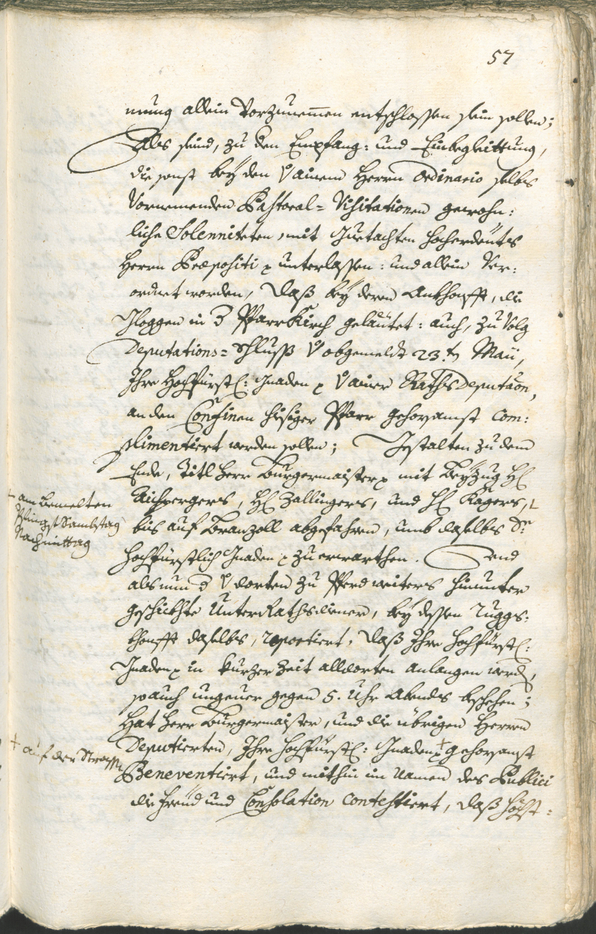 57
mung allein vorzunemen entschlossen sein sollen;
Als seind, zu den Empfang: und Einbegleittung,
die sonst bey den V ainem Herrn Ordinario selbs
vornemenden Pastoral=Visitationen gewohn:
liche Solenniteten, mit Guetachten hocherdeüts
Herrn Præpositi unterlassen: und allein ver:
ordnet worden, daß bey deren Ankhonfft, die
Gloggen in d Pfarrkirch geläutet: auch, zu Volg
Deputations=Schluß V obgemeldt 23.ten Maii,
Ihre Hochfürstl: Gnaden V ainer RathsDeputaon,
an den Confinen hiesiger Pfarr gehorsamst com:
plimentiert werden sollen; Gestalten zu dem
Ende, Titl Herr Burgermaister mit Beyzug H:
Aichpergers, H: Zallingers, und H: Kagers,
+ am bemelten
Pfingst Sambstag
Nachmittag
bis auf Branzoll abgefahren, umb daselbs Sr.
Hochfürstlich Gnaden zu erwarthen. Und
als nun d V dorten zu Pferd weiters hinunter
geschickhte Unter Rathsdiener, bey dessen Zuggs:
khonfft daselbs, repetiert, daß Ihre Hochfürstl:
Gnaden in kurzer Zeit alldorten anlangen werde,
so auch ungeuer gegen 5. Uhr Abends beschehen;
Hat Herr Burgermaister, und die übrigen Herrn
Deputierten, Ihre Hochfürstl: Gnaden + gehorsamst
+ auf der Strassen
Beneventiert, und mithin im Namen des Publici
die Freud und Consolation contestiert, daß Höchst=